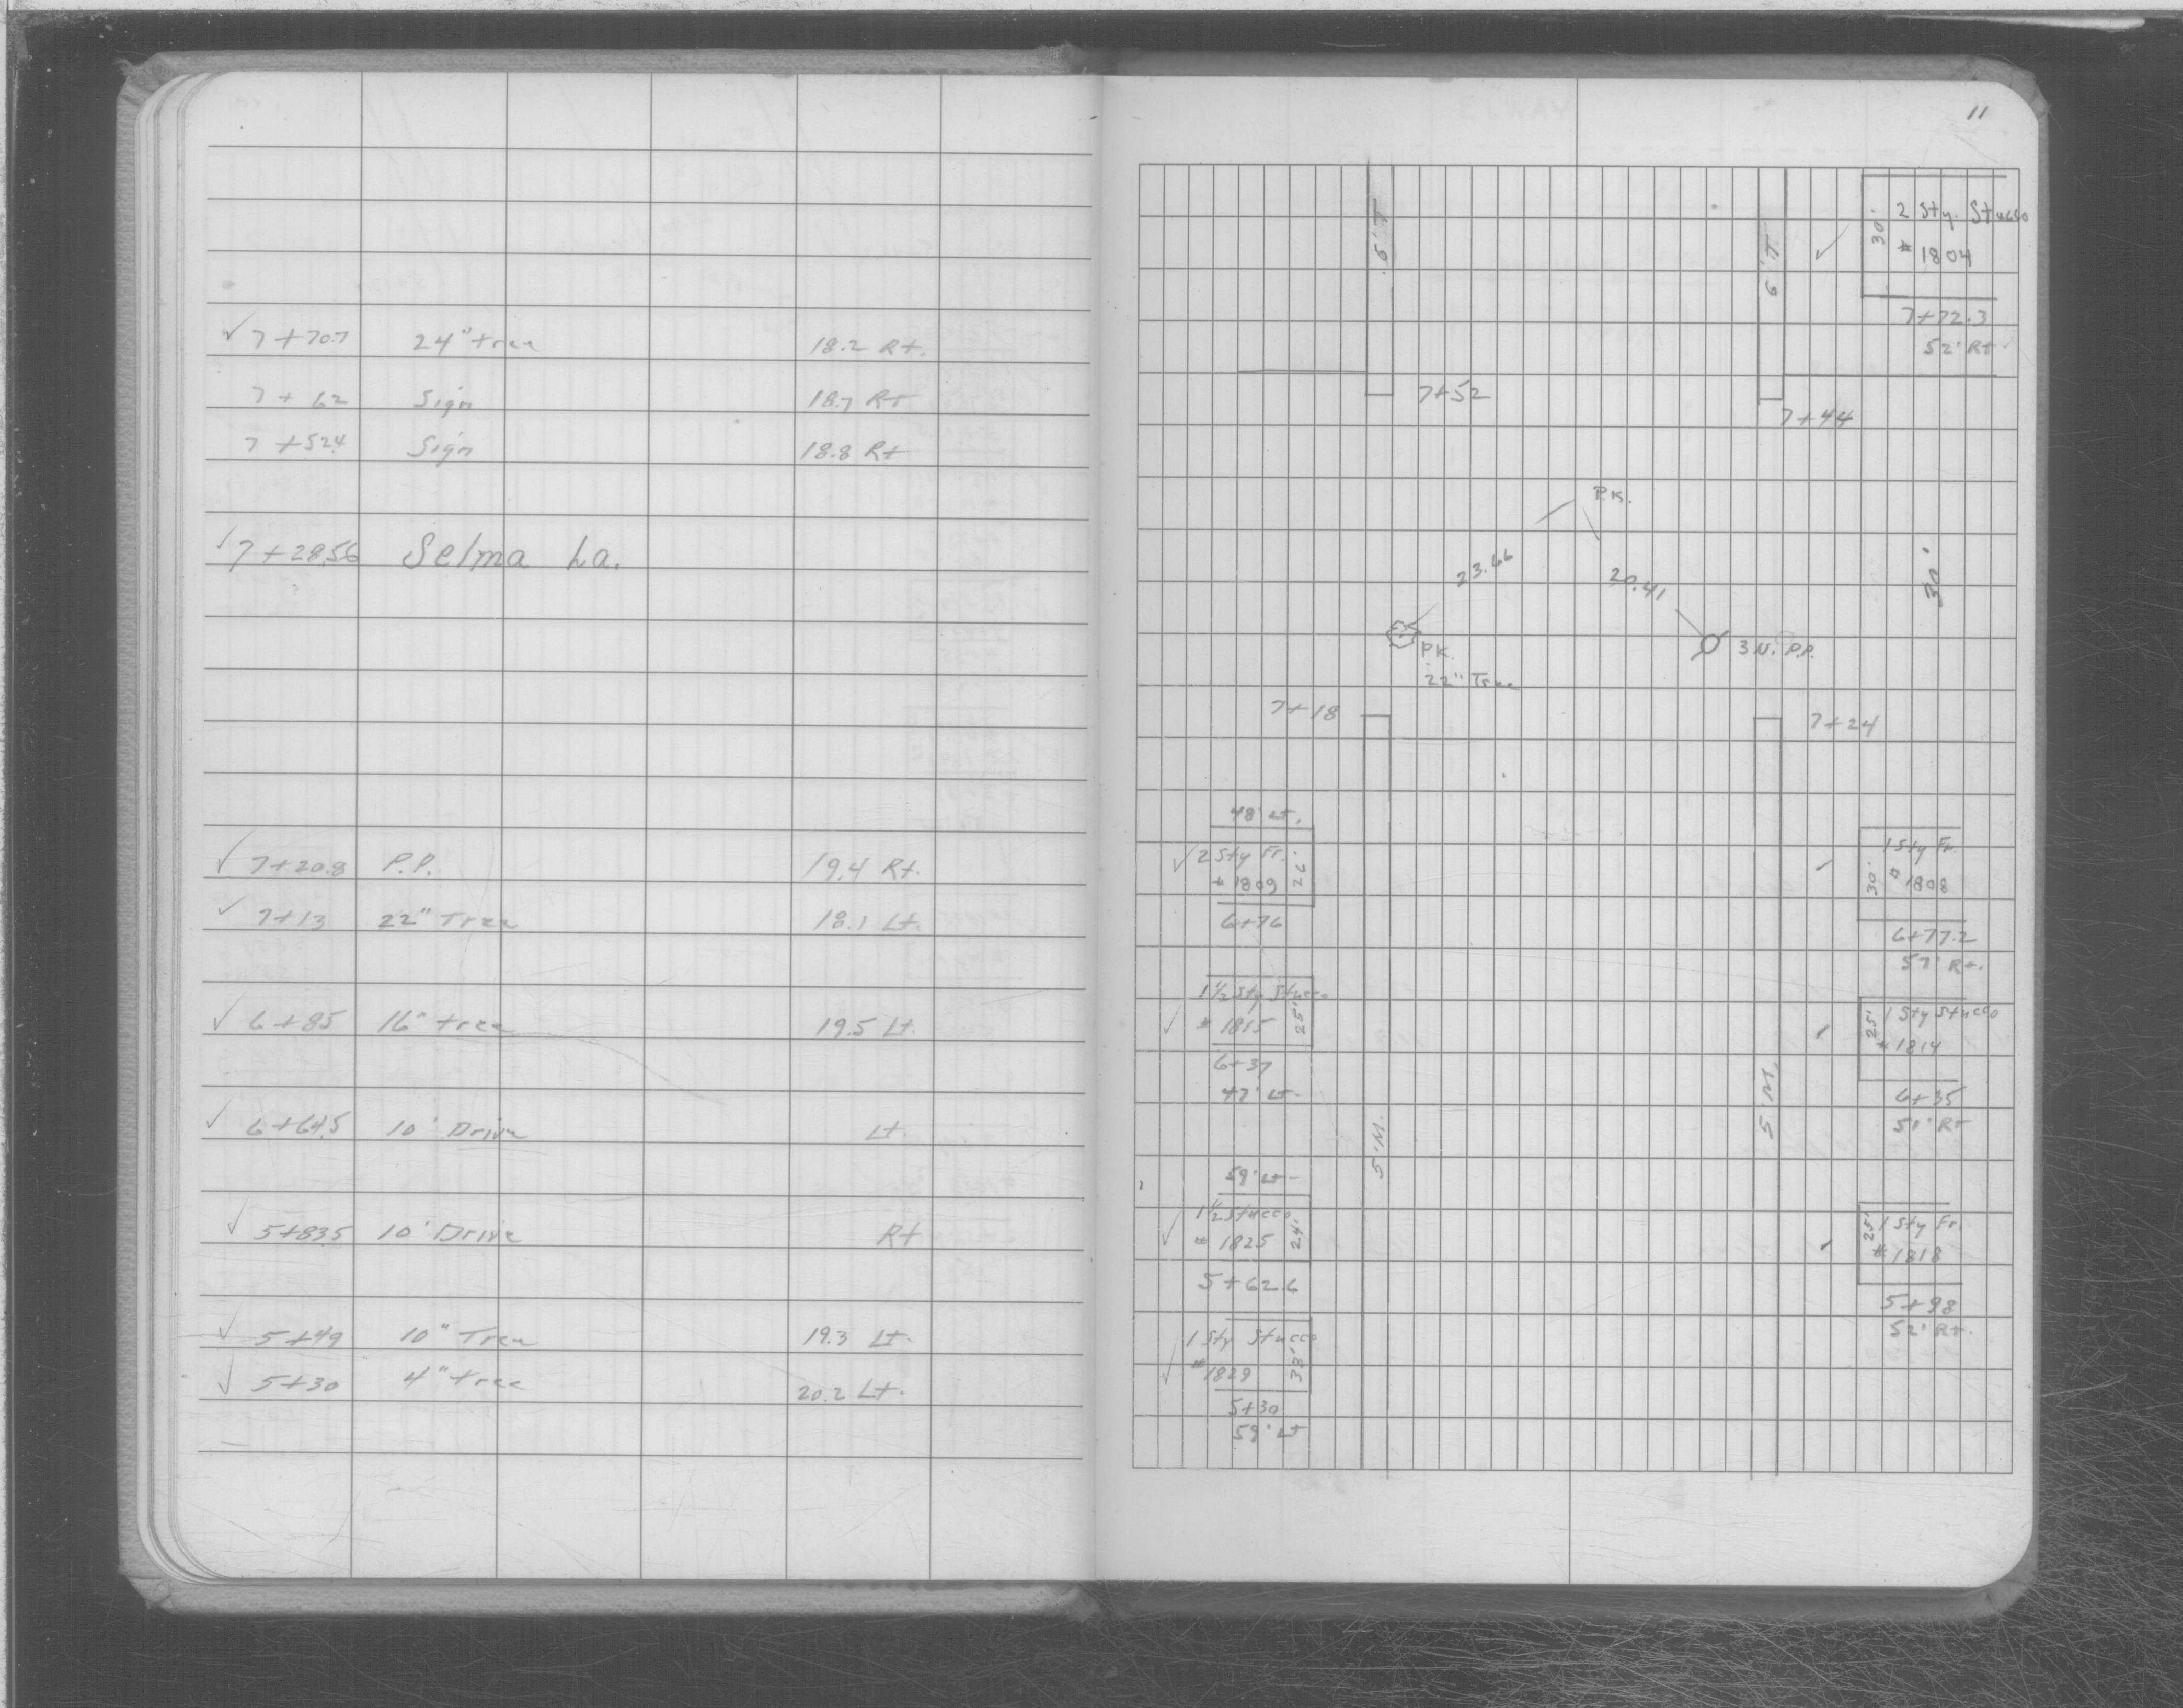 ✓ 7+70.7 24" tree 18.2 Rt.
7+62 Sign 18.7 Rt
7+52.4 Sign 18.8 Rt
✓ 7+28.56 Selma La.
✓ 7+20.8 P.P. 19.4 Rt.
✓ 7+13 22" Tree 18.1 Lt.
✓ 6+85 16" tree 19.5 Lt.
✓ 6+64.5 10' Drive Lt.
✓ 5+83.5 10' Drive Rt
✓ 5+49 10" Tree 19.3 Lt.
✓ 5+30 4" tree 20.2 Lt.
11
6' T.
6' T.
✓
30'
2 Sty. Stucco
# 1804
7+72.3
52' Rt.
7+52
7+44
P.K.
23.66
20.41
30'
P.K.
22" Tree
3 N. P.P.
7+18
7+24
48' Lt.
✓ 2 Sty Fr.
# 1809
26'
6+76
✓
1 Sty Fr.
# 1808
30'
6+77.2
57' Rt.
1 1/2 Sty Stucco
✓ # 1815
25'
6+37
47' Lt.
✓
1 Sty Stucco
# 1814
25'
6+35
51' Rt
5' M.
5' M.
59' Lt.
1 1/2 Stucco
✓ # 1825
24'
5+62.6
✓
1 Sty Fr.
# 1818
25'
5+98
52' Rt.
1 Sty Stucco
✓ # 1829
33'
5+30
59' Lt